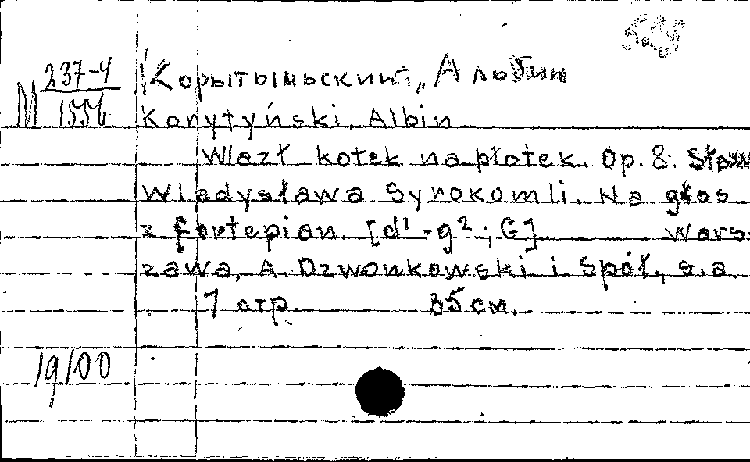 M 237-4
1556
Корытыньский, Альбин
Korytyński, Albin
Wlazł kotek na płotek. Op. 8. Słowa
Władysława Syrokomli. Na głos
z fortepian. [d¹-g²; G] Wars-
zawa, A. Dzwonkowski i Spół, s.a.
7 стр. 35 см.
19/00